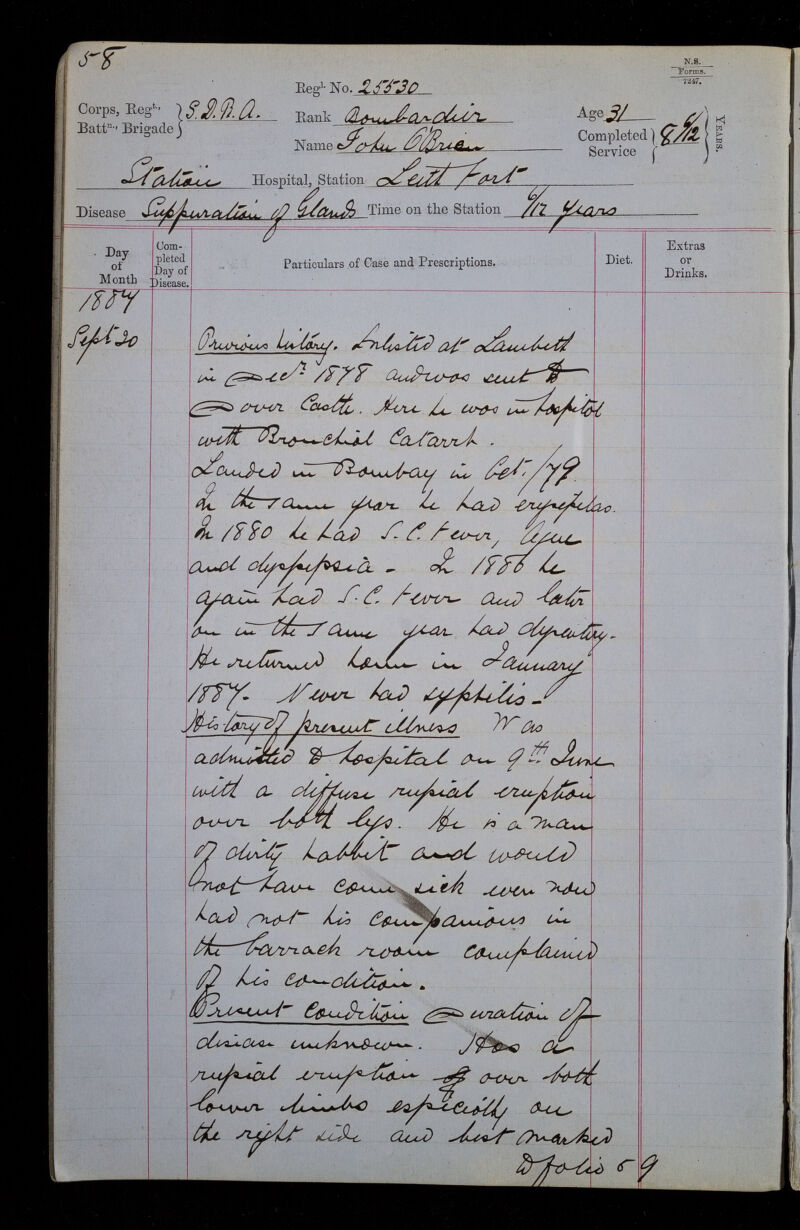 58
N.S.
Forms.
7247.
Regl. No. 25530
Corps, Regt., Battn., Brigade } S.D.R.A.
Rank Bombardier
Age 31
Name John O'Brien
Completed Service } 8 6/12 } YEARS.
Station Hospital, Station Leith Fort
Disease Suppuration of Glands Time on the Station 6/12 years
Day of Month
Completed Day of Disease.
Particulars of Case and Prescriptions.
Diet.
Extras or Drinks.
1887
Sept 20
Previous history. Enlisted at Lambeth
in Decr 1878 and was sent to
Dover Castle. Here he was in hospital
with Bronchial Catarrh.
Landed in Bombay in Oct. /79.
In the same year he had erysepelas.
In 1880 he had S.C. Fever, Ague
and dyspepsia - In 1886 he
again had S.C. Fever and later
on in the same year had dysentery.
He returned home in January
1887. Never had syphilis -
History of present illness Was
admitted to hospital on 9th June
with a diffuse rupial eruption
over both legs. He is a man
of dirty habbit and would
not have come sick even now
had not his companions in
the barrack room complained
of his condition.
Present Condition Duration of
disease unknown. Has a
rupial eruption of over both
lower limbs especially on
the right side and best marked
to folio 59